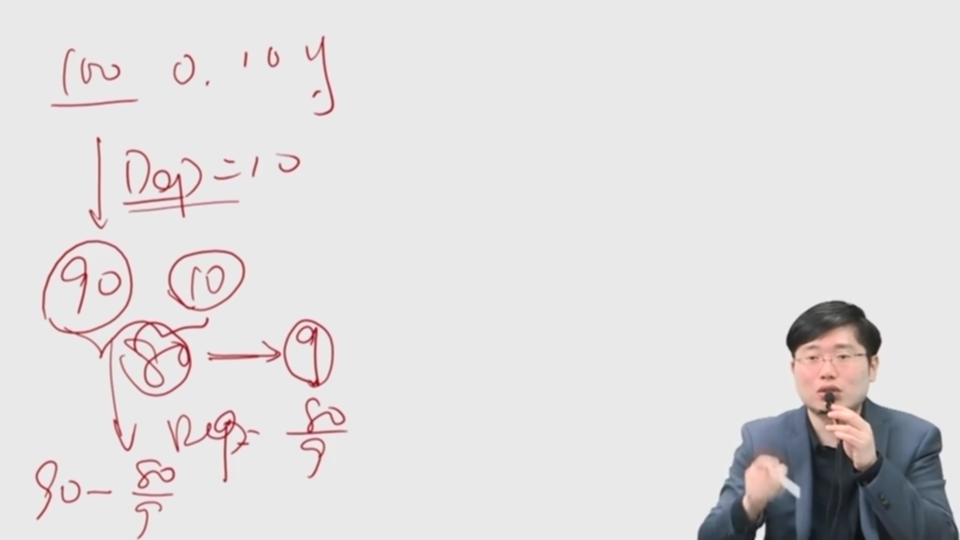 100 0. 10 y
Dep = 10
90 10
80 → 9
Dep = 80/9
90 - 80/9